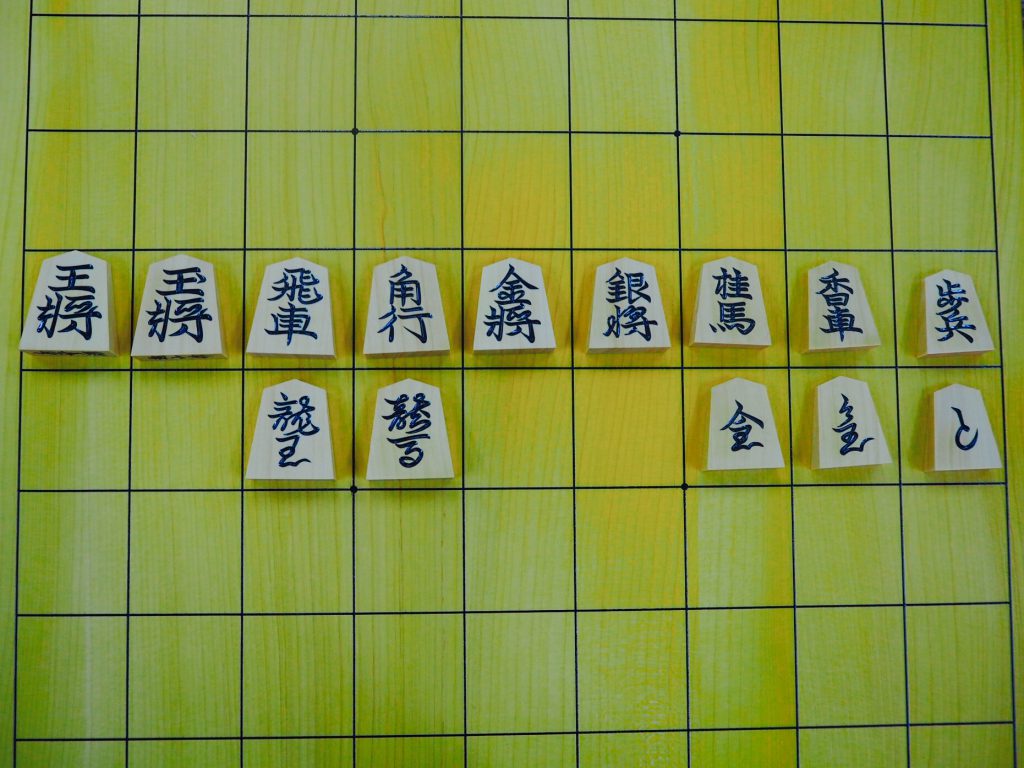 王將 玉將 飛車 角行 金將 銀將 桂馬 香車 歩兵
龍王 龍馬 全 と